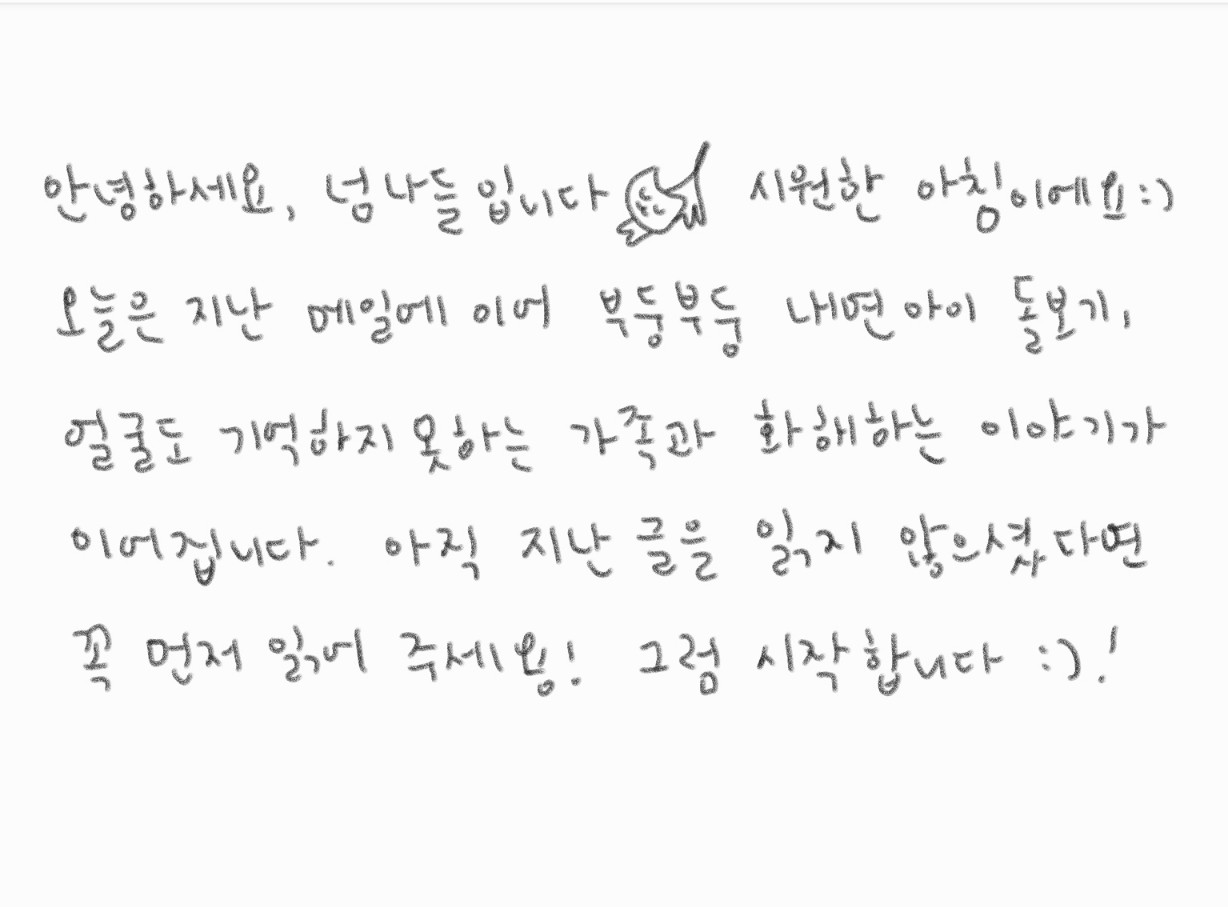 안녕하세요, 넘나들입니다 시원한 아침이에요:)
오늘은 지난 메일에 이어 부둥부둥 내면아이 돌보기,
얼굴도 기억하지 못하는 가족과 화해하는 이야기가
이어집니다. 아직 지난 글을 읽지 않으셨다면
꼭 먼저 읽어 주세용! 그럼 시작합니다 :)!